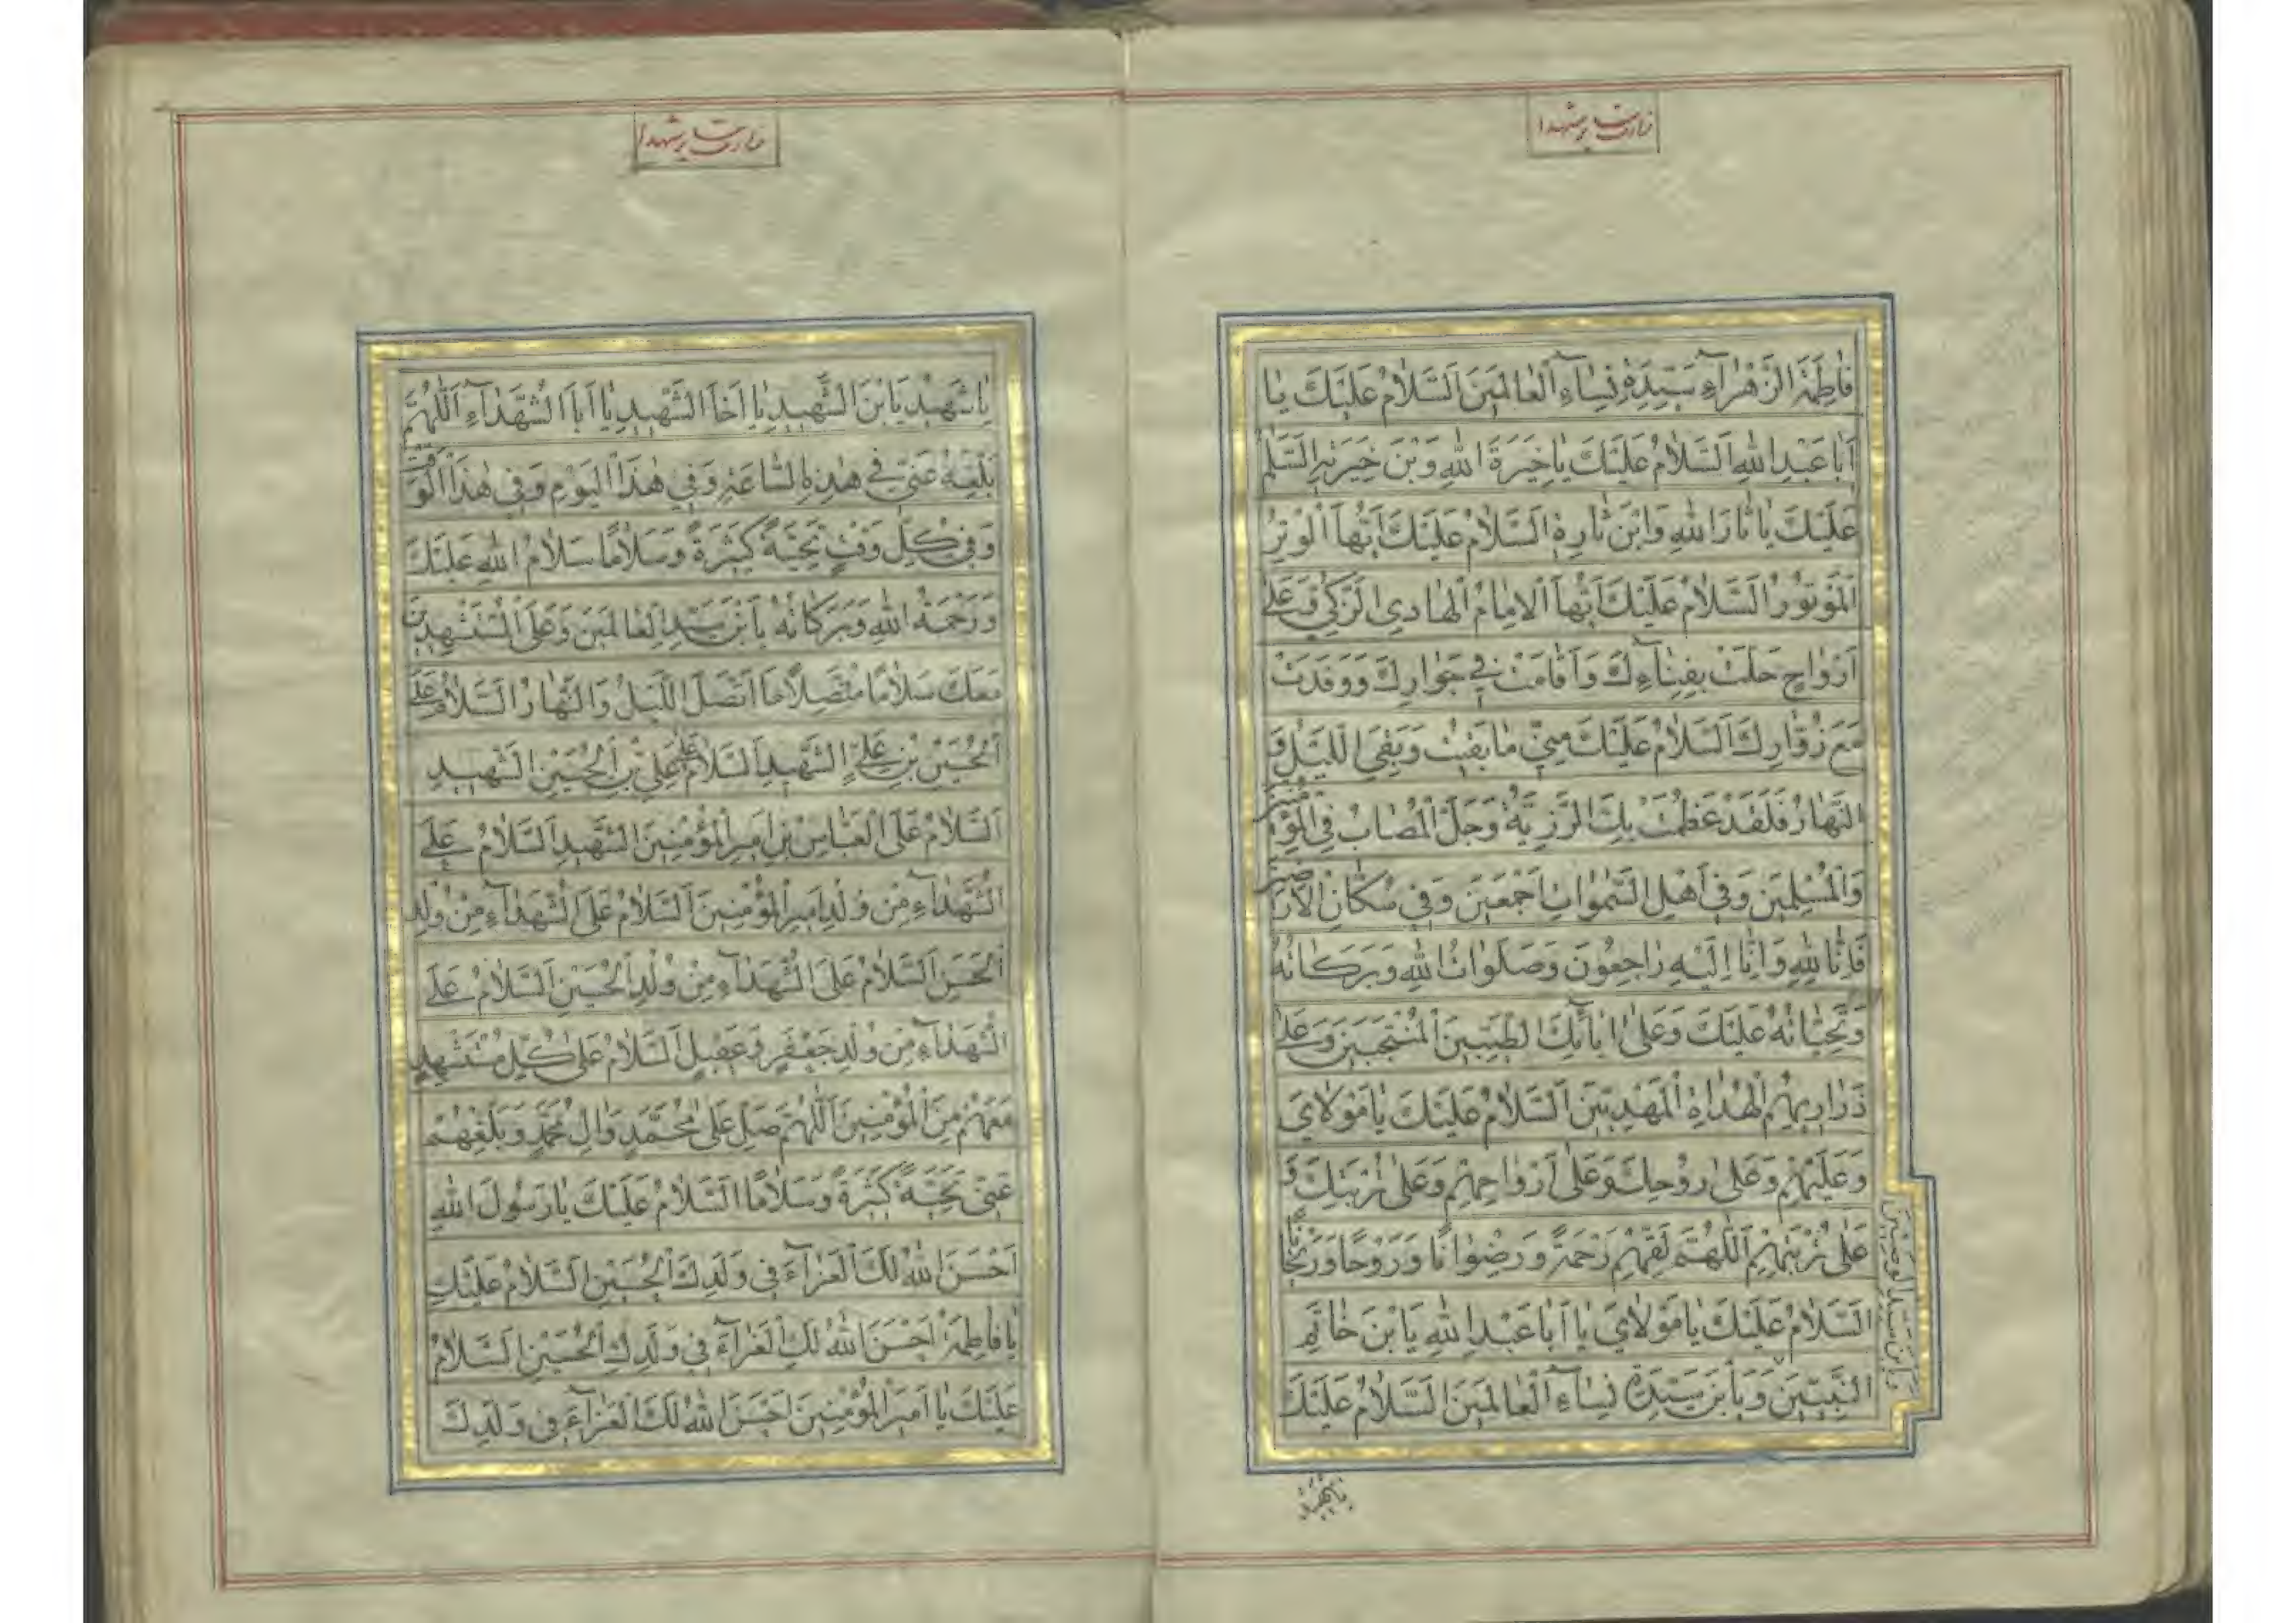 زیارت سر شهدا
فٰاطِمَةَ الزَّهْرٰآءِ سَيِّدَةِ نِسٰآءِ الْعٰالَمينَ اَلسَّلٰامُ عَلَيْكَ يٰا
اَبٰا عَبْدِ اللهِ اَلسَّلٰامُ عَلَيْكَ يٰا خِيَرَةَ اللهِ وَبْنَ خِيَرَتِهِ اَلسَّلٰامُ
عَلَيْكَ يٰا ثٰارَ اللهِ وَابْنَ ثٰارِهِ اَلسَّلٰامُ عَلَيْكَ اَيُّهَا الْوِتْرُ
الْمَوْتُورُ اَلسَّلٰامُ عَلَيْكَ اَيُّهَا الْاِمٰامُ الْهٰادِي الزَّكِيُّ وَعَلىٰ
اَرْوٰاحٍ حَلَّتْ بِفِنٰآءِكَ وَاَقٰامَتْ في جَوٰارِكَ وَوَفَدَتْ
مَعَ زُوّٰارِكَ اَلسَّلٰامُ عَلَيْكَ مِنّي مٰا بَقيتُ وَبَقِيَ اللَّيْلُ وَ
النَّهٰارُ فَلَقَدْ عَظُمَتْ بِكَ الرَّزِيَّةُ وَجَلَّ الْمُصٰابُ فِي الْمُؤْمِنينَ
وَالْمُسْلِمينَ وَفي اَهْلِ السَّمٰوٰاتِ اَجْمَعينَ وَفي سُكّٰانِ الْاَرَضينَ
فَاِنّٰا لِلّٰهِ وَاِنّٰا اِلَيْهِ رٰاجِعُونَ وَصَلَوٰاتُ اللهِ وَبَرَكٰاتُهُ
وَتَحِيّٰاتُهُ عَلَيْكَ وَعَلىٰ اٰبٰائِكَ الطَّيِّبينَ الْمُنْتَجَبينَ وَعَلىٰ
ذَرٰارِيهِمُ الْهُدٰاةِ الْمَهْدِيّينَ اَلسَّلٰامُ عَلَيْكَ يٰا مَوْلٰايَ
وَعَلَيْهِمْ وَعَلىٰ رُوحِكَ وَعَلىٰ اَرْوٰاحِهِمْ وَعَلىٰ تُرْبَتِكَ وَ
عَلىٰ تُرْبَتِهِمْ اَللّٰهُمَّ لَقِّهِمْ رَحْمَةً وَرِضْوٰانًا وَرَوْحًا وَرَيْحٰانًا
اَلسَّلٰامُ عَلَيْكَ يٰا مَوْلٰايَ يٰا اَبٰا عَبْدِ اللهِ يَا بْنَ خٰاتَمِ
النَّبِيّينَ وَيَا بْنَ سَيِّدَةِ نِسٰآءِ الْعٰالَمينَ اَلسَّلٰامُ عَلَيْكَ
وَيَا بْنَ سَيِّدِ الْوَصِيّينَ
يا شهيد
زیارت سر شهدا
يٰا شَهيدُ يَا بْنَ الشَّهيدِ يٰا اَخَا الشَّهيدِ يٰا اَبَا الشُّهَدٰآءِ اَللّٰهُمَّ
بَلِّغْهُ عَنّي في هٰذِهِ السّٰاعَةِ وَفي هٰذَا الْيَوْمِ وَفي هٰذَا الْوَقْتِ
وَفي كُلِّ وَقْتٍ تَحِيَّةً كَثيرَةً وَسَلٰامًا سَلٰامُ اللهِ عَلَيْكَ
وَرَحْمَةُ اللهِ وَبَرَكٰاتُهُ يَا بْنَ سَيِّدِ الْعٰالَمينَ وَعَلَى الْمُسْتَشْهَدينَ
مَعَكَ سَلٰامًا مُتَّصِلًا مَا اتَّصَلَ اللَّيْلُ وَالنَّهٰارُ اَلسَّلٰامُ عَلَى
الْحُسَيْنِ بْنِ عَلِيٍّ الشَّهيدِ اَلسَّلٰامُ عَلىٰ عَلِيِّ بْنِ الْحُسَيْنِ الشَّهيدِ
اَلسَّلٰامُ عَلَى الْعَبّٰاسِ بْنِ اَميرِ الْمُؤْمِنينَ الشَّهيدِ اَلسَّلٰامُ عَلَى
الشُّهَدٰآءِ مِنْ وُلْدِ اَميرِ الْمُؤْمِنينَ اَلسَّلٰامُ عَلَى الشُّهَدٰآءِ مِنْ وُلْدِ
الْحَسَنِ اَلسَّلٰامُ عَلَى الشُّهَدٰآءِ مِنْ وُلْدِ الْحُسَيْنِ اَلسَّلٰامُ عَلَى
الشُّهَدٰآءِ مِنْ وُلْدِ جَعْفَرٍ وَعَقيلٍ اَلسَّلٰامُ عَلىٰ كُلِّ مُسْتَشْهَدٍ
مَعَهُمْ مِنَ الْمُؤْمِنينَ اَللّٰهُمَّ صَلِّ عَلىٰ مُحَمَّدٍ وَاٰلِ مُحَمَّدٍ وَبَلِّغْهُمْ
عَنّي تَحِيَّةً كَثيرَةً وَسَلٰامًا اَلسَّلٰامُ عَلَيْكَ يٰا رَسُولَ اللهِ
اَحْسَنَ اللهُ لَكَ الْعَزٰآءَ في وَلَدِكَ الْحُسَيْنِ اَلسَّلٰامُ عَلَيْكِ
يٰا فٰاطِمَةُ اَحْسَنَ اللهُ لَكِ الْعَزٰآءَ في وَلَدِكِ الْحُسَيْنِ اَلسَّلٰامُ
عَلَيْكَ يٰا اَميرَ الْمُؤْمِنينَ اَحْسَنَ اللهُ لَكَ الْعَزٰآءَ في وَلَدِكَ